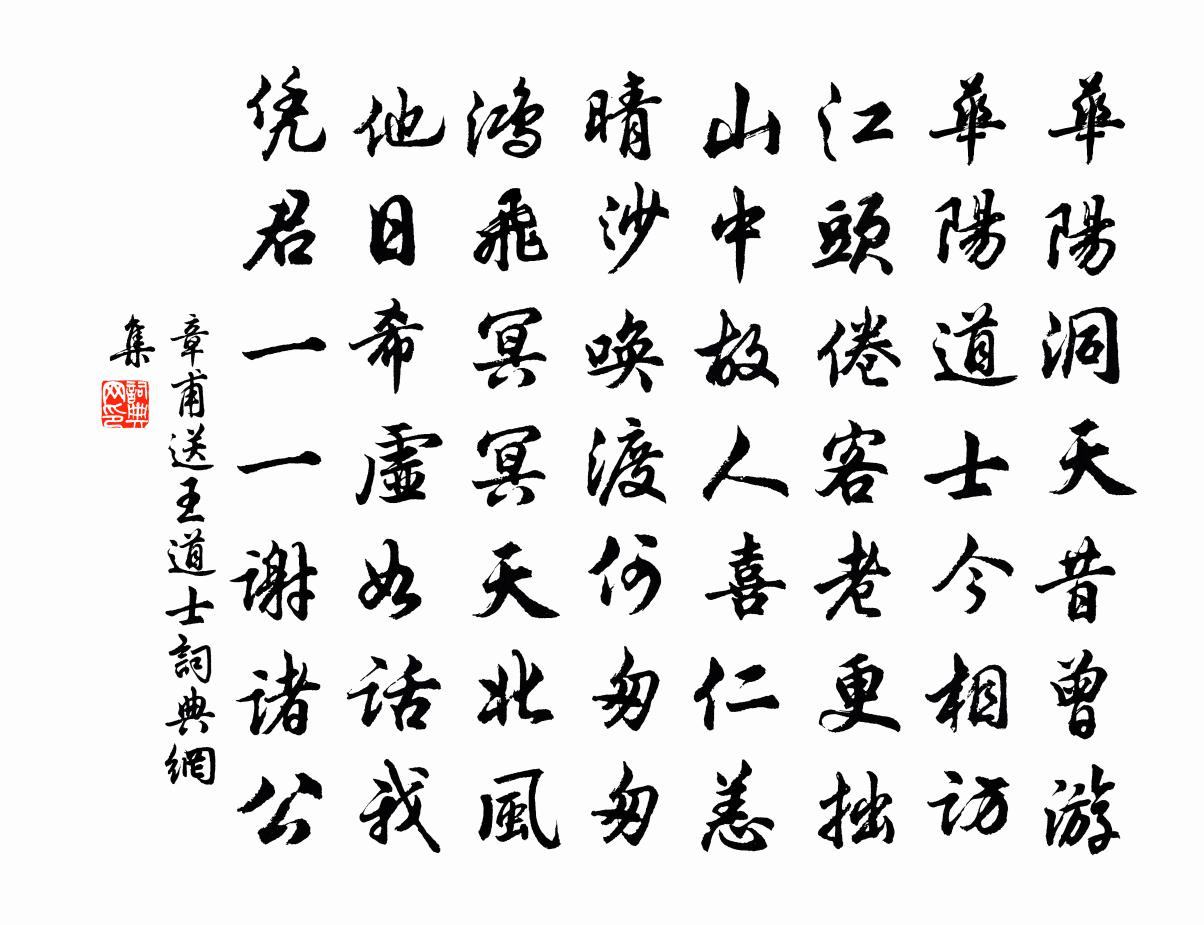 華陽洞天昔曾游
華陽道士今相訪
江頭倦客老更拙
山中故人喜仁恙
晴沙唤渡何匆匆
鴻飛冥冥天北風
他日希虛如話我
凭君一一谢诸公
章甫送王道士詞典網
集
詞典网印